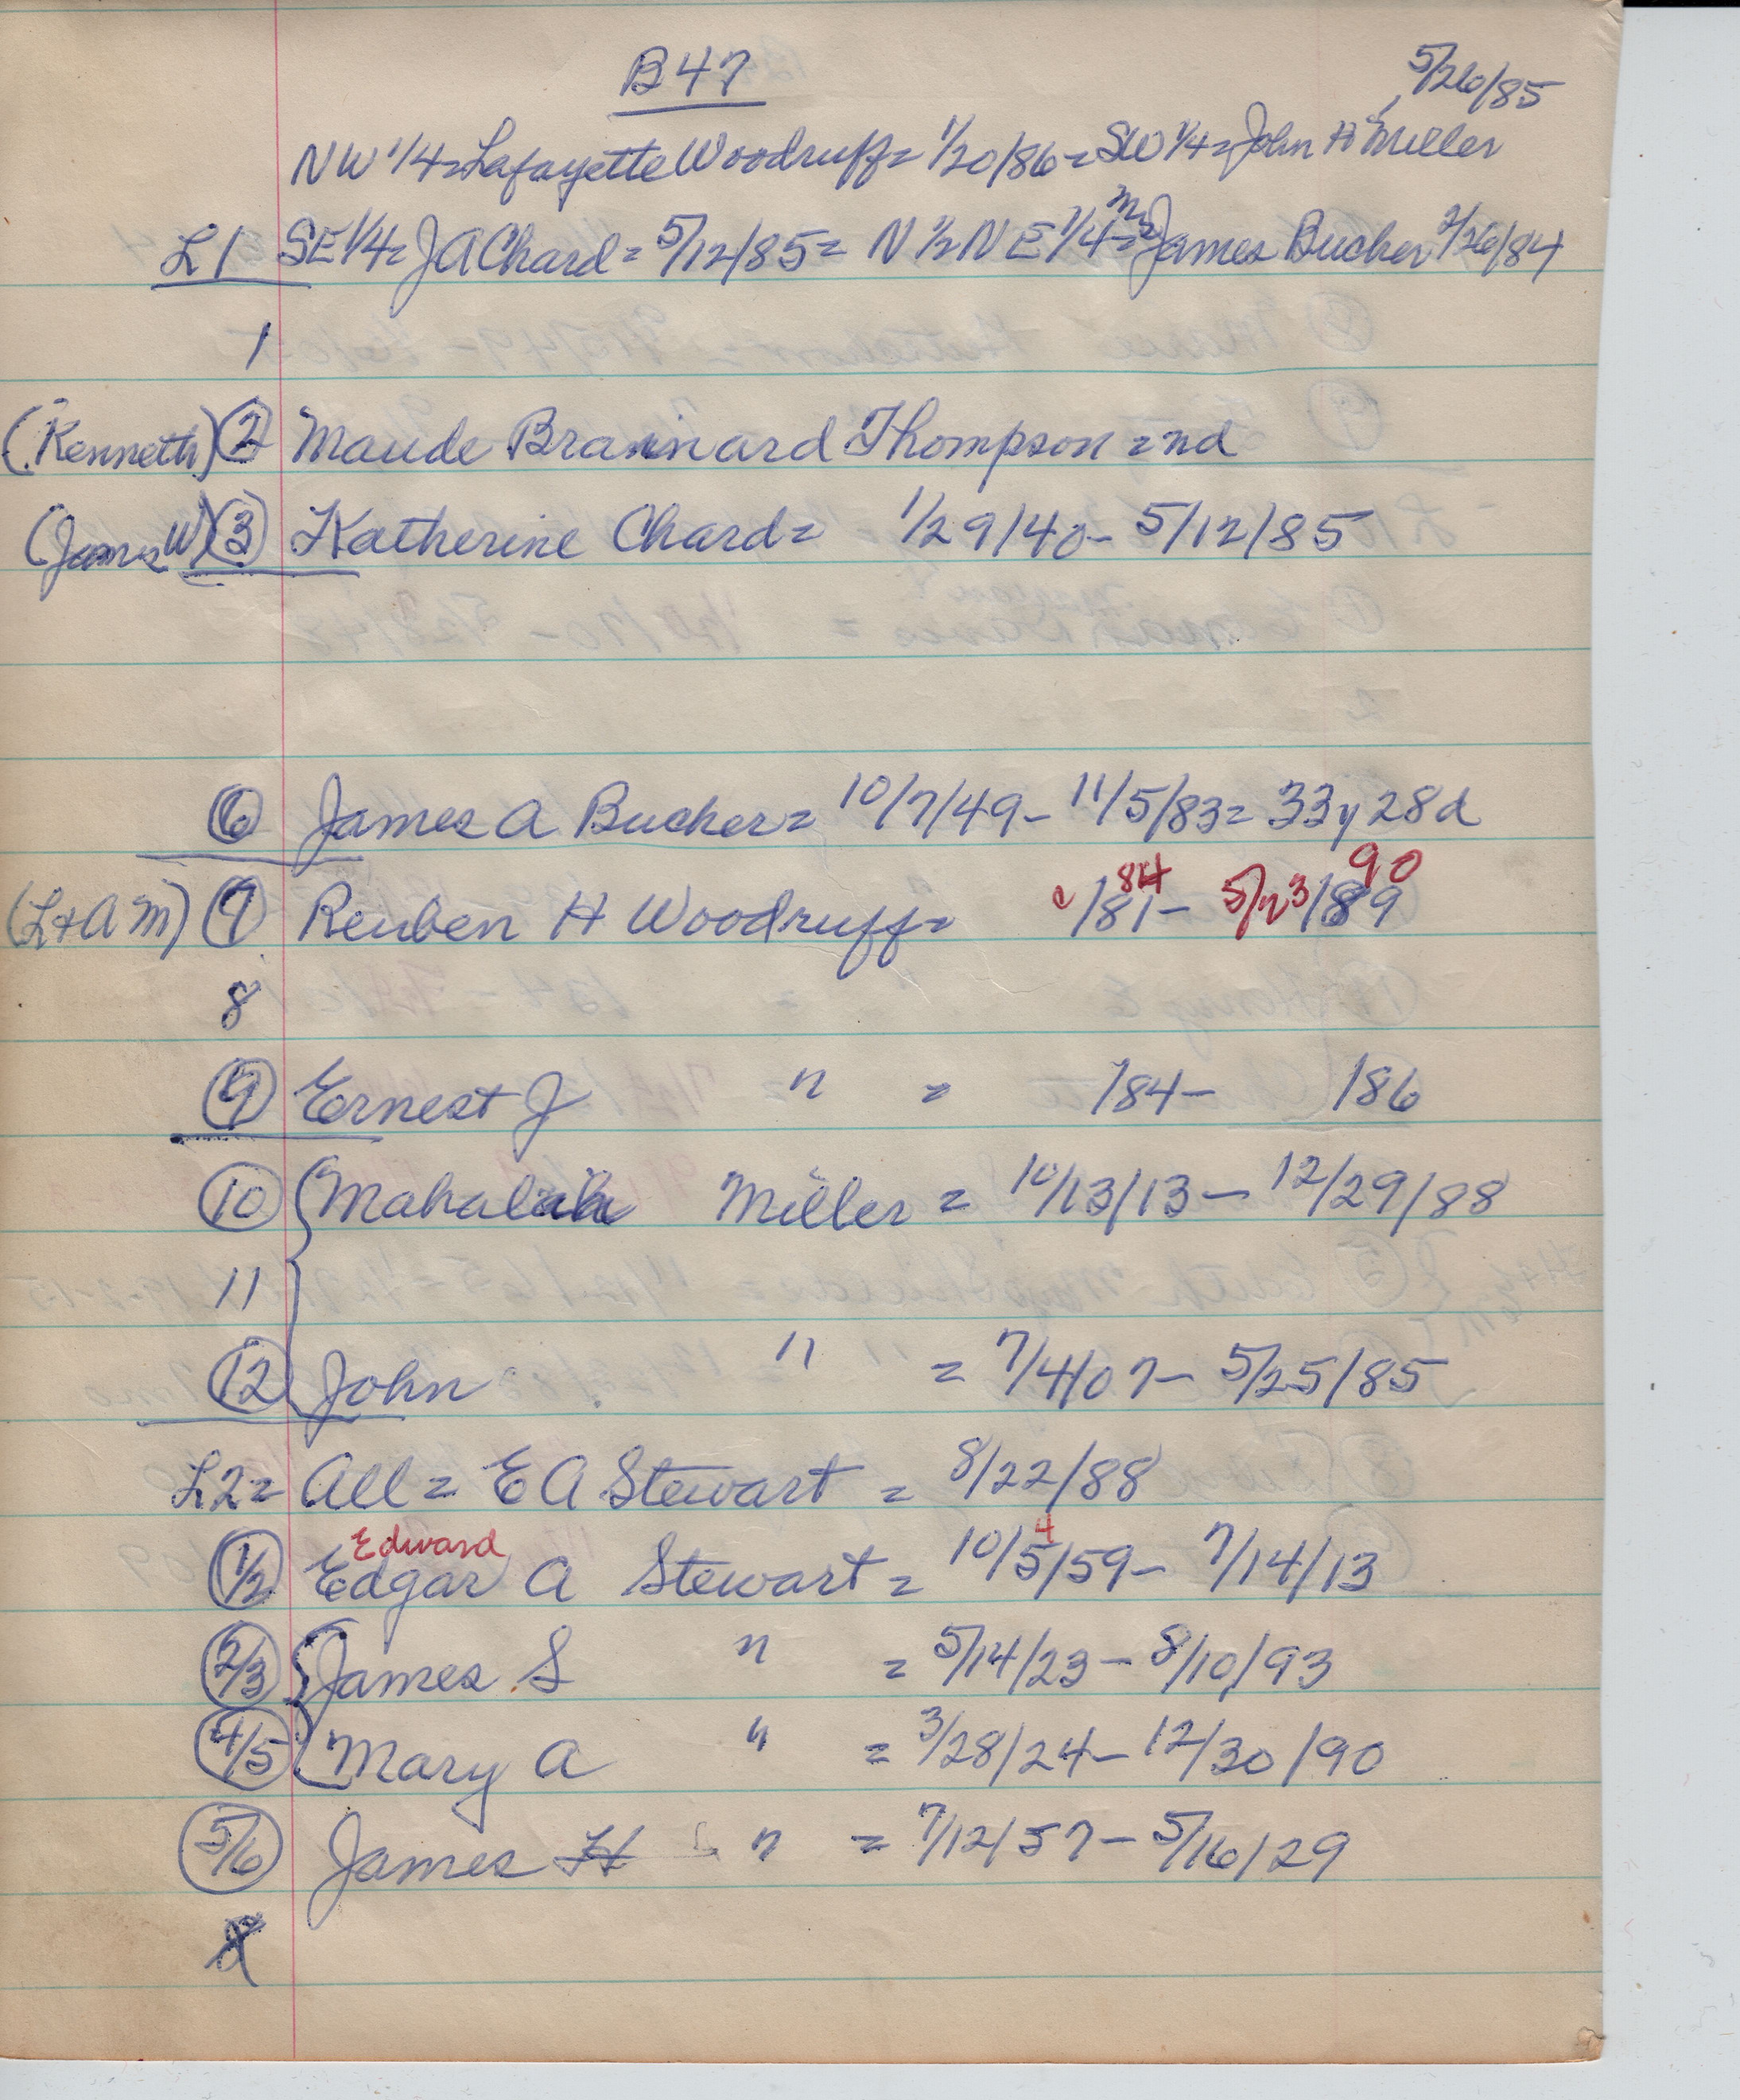 B47
5/26/85
NW 1/4 = Lafayette Woodruff = 1/20/86 = SW 1/4 = John H Miller
L1 SE 1/4 = J A Chard = 5/12/85 = N 1/2 N E 1/4 = Mrs James Bucher 2/26/84
1
(Kenneth) 2 Maude Brainard Thompson = nd
(James W) 3 Katherine Chard = 1/29/40 - 5/12/85
6 James A Bucher = 10/7/49 - 11/5/83 = 33y 28d
84 90
(L + A M) 7 Reuben H Woodruff = /81 - 5/23/89
8
9 Ernest J " = /84 - /86
10 Mahalah Miller = 10/13/13 - 12/29/88
11
12 John " = 7/4/07 - 5/25/85
L2 = All = E A Stewart = 8/22/88
Edward 4
1/2 Edgar A Stewart = 10/5/59 - 7/14/13
2/3 James S " = 5/14/23 - 8/10/93
4/5 Mary A " = 3/28/24 - 12/30/90
5/6 James H " = 7/12/57 - 5/16/29